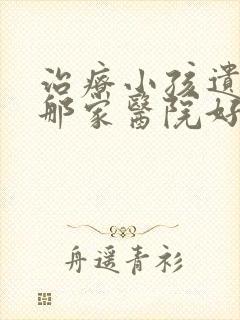 治療小孩遺
那家醫院好
舟遥青衫